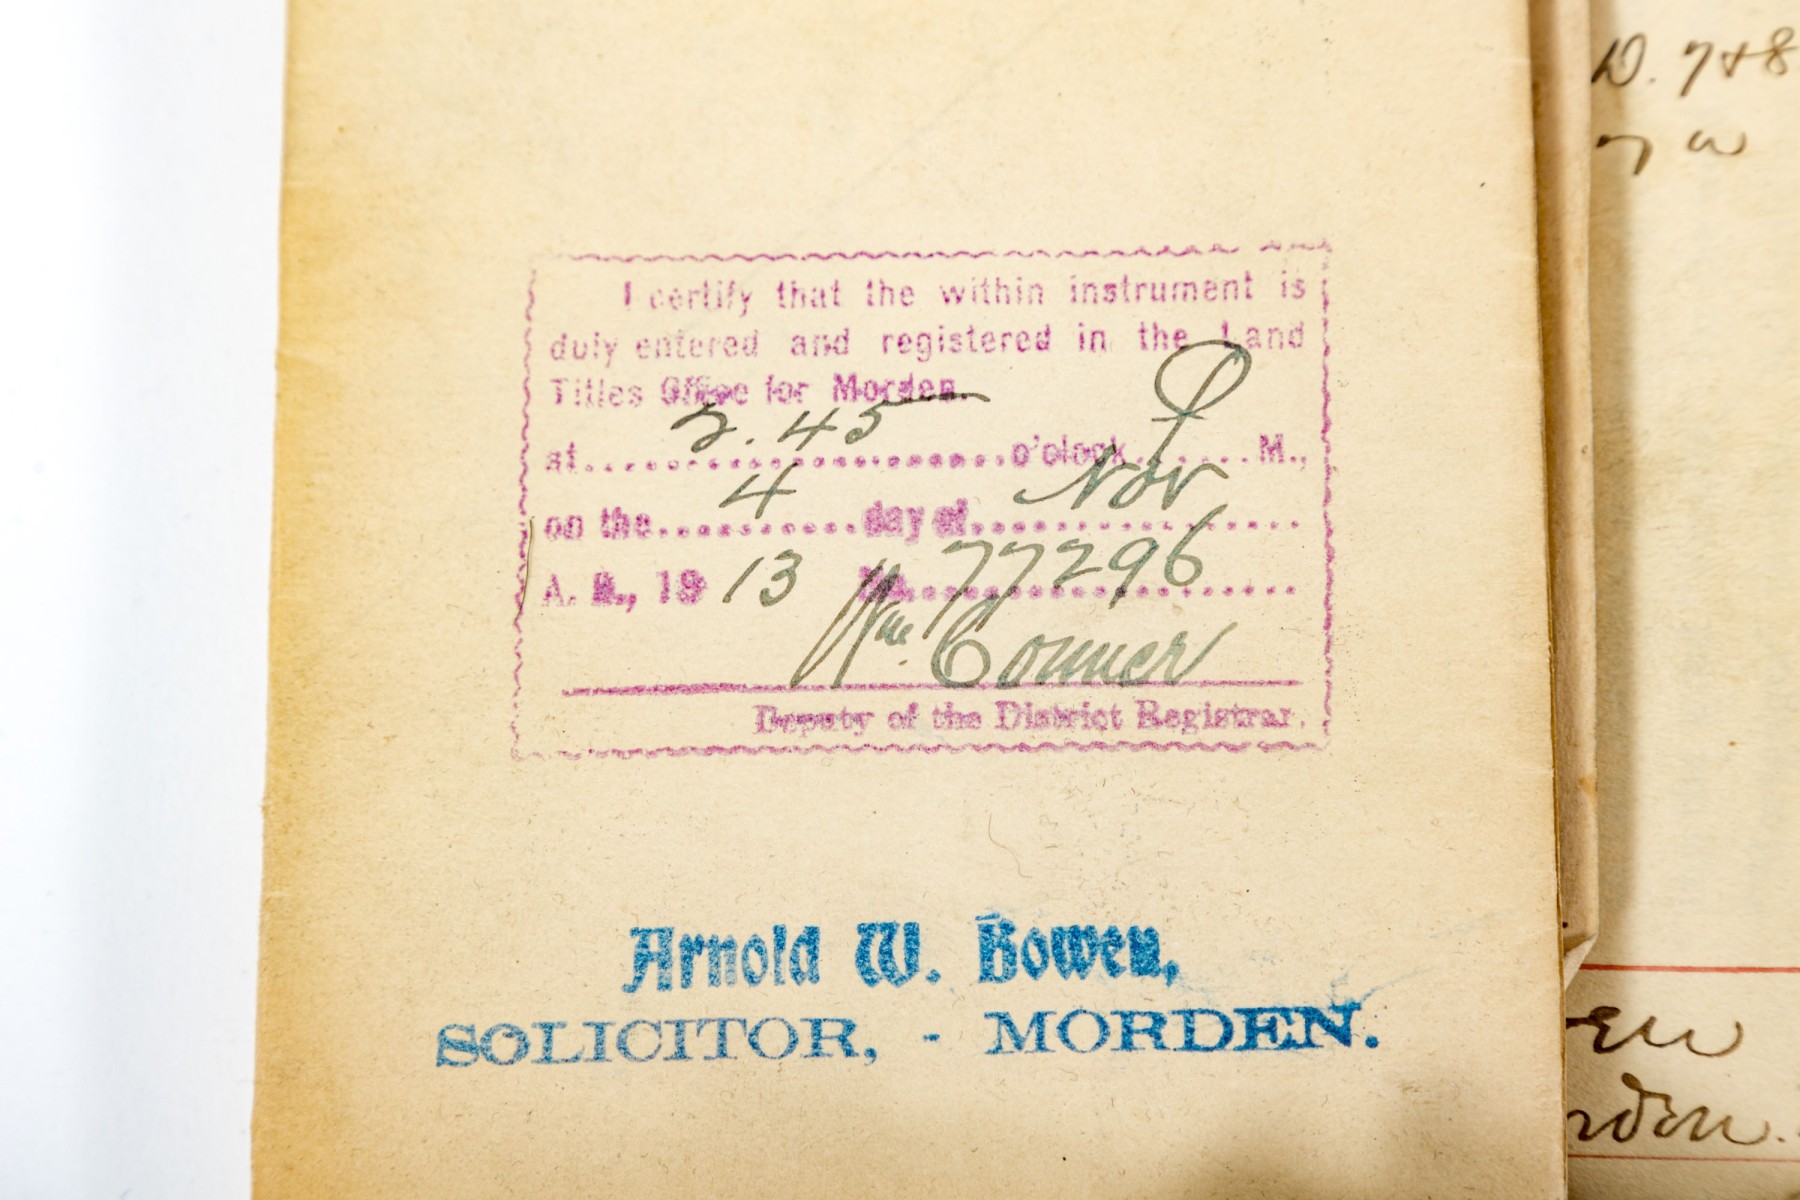 I certify that the within instrument is
duly entered and registered in the Land
Titles Office for Morden.
at 2.45 o'clock P M.,
on the 4 day of Nov
A. D., 19 13 No. 77296
Wm. Conner
Deputy of the District Registrar.
Arnold W. Bowen,
SOLICITOR, - MORDEN.
D. 7+8
en
rden.